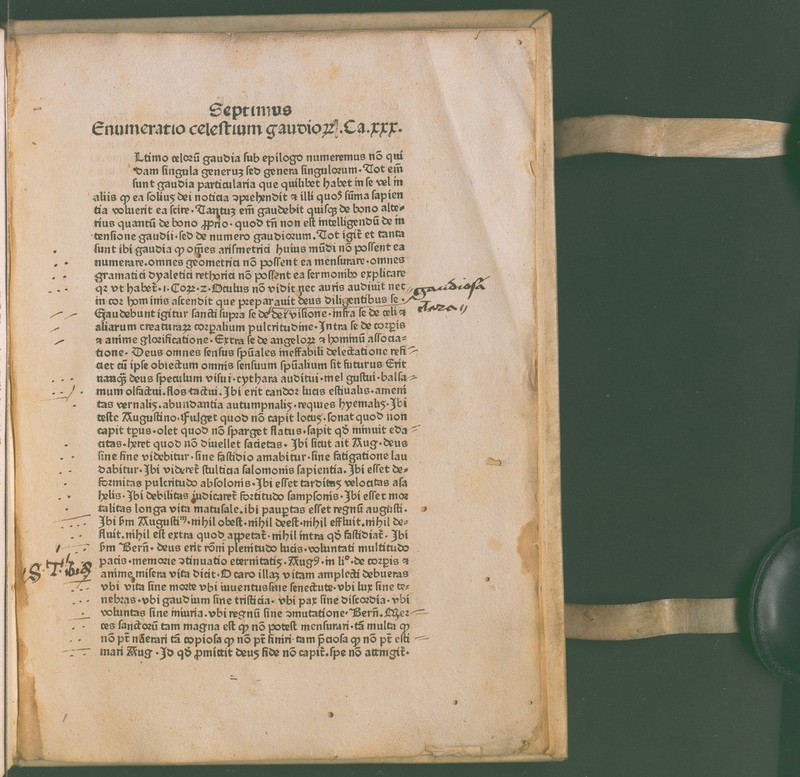 Septimus
Enumeratio celestium gaudioꝝ. Ca.xxx.
Ltimo celorū gaudia sub epilogo numeremus nō qui
dam singula generuʒ sed genera singulorum · Tot em̄
sunt gaudia particularia que quilibet habet in se vel in
aliis ꝙ ea solius dei noticia ↄprehendit ⁊ illi quoꝰ sūma sapien
tia voluerit ea scire · Tantuʒ em̄ gaudebit quisqʒ de bono alte⸗
rius quantū de bono ꝓprio · quod tn̄ non est intelligendū de in
tensione gaudii · sed de numero gaudiorum. Tot igit᷑ et tanta
sunt ibi gaudia ꝙ om̄es arismetrici huius mūdi nō possent ea
numerare. omnes geometrici nō possent ea mensurare. omnes
gramatici dyaletici rethorici nō possent ea sermonibꝫ explicare
qꝛ vt habet᷑ · i · Coꝝ · 2 · Oculus nō vidit nec auris audiuit nec
in cor hominis ascendit que preparauit deus diligentibus se ·
gaudiosa
Gaudebunt igitur sancti supra se de dei visione · infra se de celi ⁊
aliarum creaturaꝝ corꝑalium pulcritudine · Intra se de corꝑis
⁊ anime glorificatione · Extra se de angeloꝝ ⁊ hominū associa⸗
tione · Deus omnes sensus spūales ineffabili delectatione refi
ciet cū ipse obiectum omnis sensuum spūalium sit futurus Erit
nanqʒ deus speculum visui · cythara auditui · mel gustui · balsa⸗
mum olfactui. flos tactui. Ibi erit candor lucis estiualis · ameni
tas vernalis. abundantia autumpnalis · reques hyemalis. Ibi
teste Augustino · Fulget quod nō capit locus · sonat quod non
capit tp̄us · olet quod nō sparget flatus · sapit qđ nō minuit eda
citas · heret quod nō diuellet sacietas · Ibi sicut ait Aug · deus
sine fine videbitur · sine fastidio amabitur · sine fatigatione lau
dabitur · Ibi videret᷑ stulticia salomonis sapientia. Ibi esset de⸗
formitas pulcritudo absolonis · Ibi esset tarditas velocitas asa
helis · Ibi debilitas iudicaret᷑ fortitudo sampsonis · Ibi esset mor
talitas longa vita matusale. ibi paupertas esset regnū augusti ·
Ibi ẜm Augustiꝰ · nihil obest · nihil deest · nihil effluit. nihil de⸗
fluit. nihil est extra quod appetat᷑ · nihil intra qđ fastidiat᷑ · Ibi
ẜm Bern̄ · deus erit rōni plenitudo lucis · voluntati multitudo
pacis · memorie ↄtinuatio eternitatis · Augꝰ · in li° · de corꝑis ⁊
S. T. 3. 8
anime misera vita dicit · O caro illaʒ vitam amplecti debueras
vbi vita sine morte vbi iuuentus sine senectute · vbi lux sine te⸗
nebras · vbi gaudium sine tristicia · vbi pax sine discordia · vbi
voluntas sine iniuria · vbi regnū sine ↄmutatione · Bern̄. Mer⸗
ces sanctorū tam magna est ꝙ nō potest mensurari · tā multa ꝙ
nō pt̄ nūerari tā copiosa ꝙ nō pt̄ finiri tam p̄ciosa ꝙ nō pt̄ esti
mari Aug · Id qđ ꝓmittit deus fide nō capit᷑. spe nō attingit᷑ ·